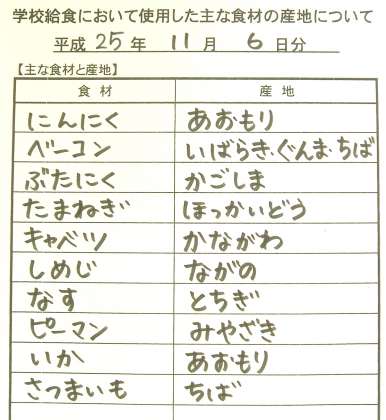 学校給食において使用した主な食材の産地について
平成 25 年 11 月 6 日分
【主な食材と産地】
食 材 産 地
にんにく あおもり
ベーコン いばらき・ぐんま・ちば
ぶたにく かごしま
たまねぎ ほっかいどう
キャベツ かながわ
しめじ ながの
なす とちぎ
ピーマン みやざき
いか あおもり
さつまいも ちば